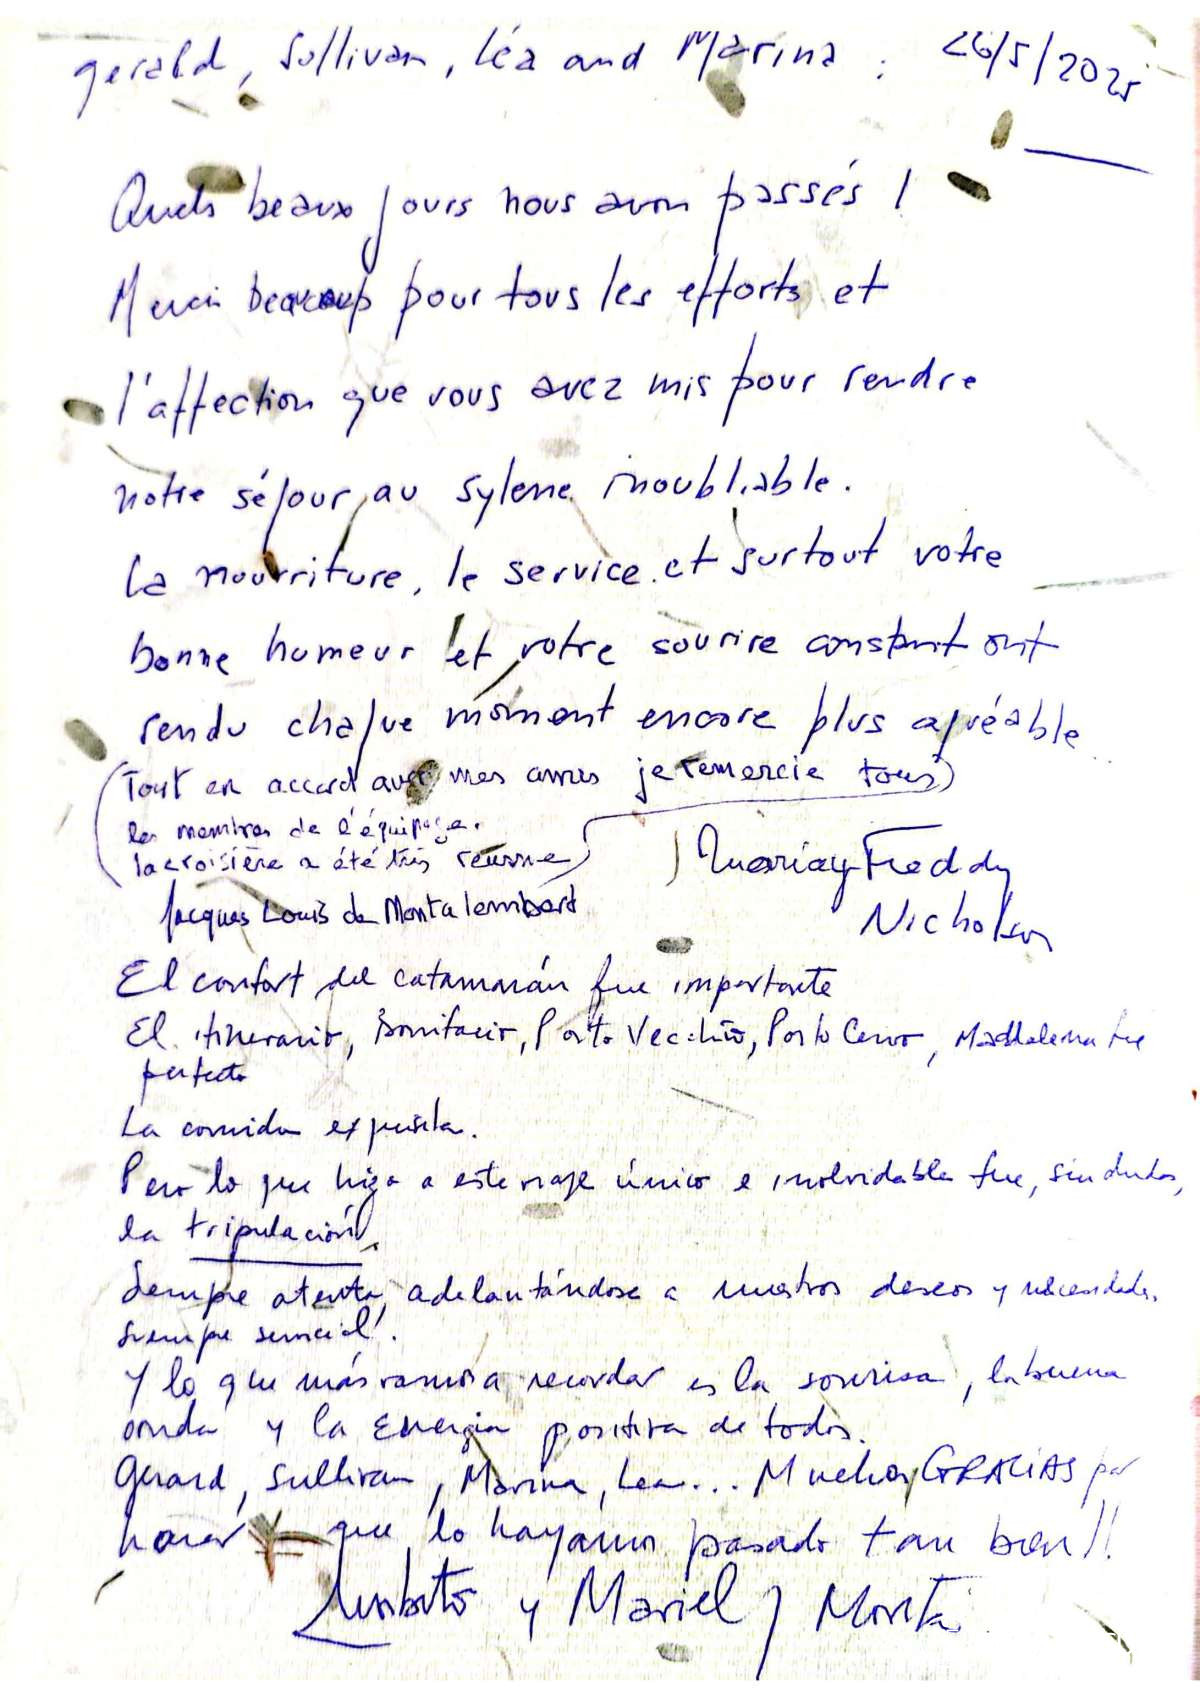 gerald, Sullivan, Léa and Marina : 26/5/2025
Quels beaux jours nous avon passés !
Merci beaucoup pour tous les efforts et
l'affection que vous avez mis pour rendre
notre séjour au sylene inoubliable.
La nourriture, le service et surtout votre
bonne humeur et votre sourire constant ont
rendu chaque moment encore plus agréable
(Tout en accord avec mes amis je remercie tous
les membres de l'équipage.
la croisière a été très réussie)
Jacques Louis de Montalembert
Maria y Freddy
Nicholson
El confort del catamarán fue importante
El itinerario, Bonifacio, Porto Vecchio, Porto Cervo, Maddalena fue
perfecto
La comida exquisita.
Pero lo que hizo a este viaje único e inolvidable fue, sin dudas,
la tripulación.
Siempre atenta, adelantándose a nuestros deseos y necesidades.
Siempre servicial!
Y lo que más vamos a recordar es la sonrisa, la buena
onda y la Energia positiva de todos.
Gerard, Sullivan, Marina, Lea... Muchas GRACIAS por
hacer que lo hayamos pasado tan bien!!
y Mariel